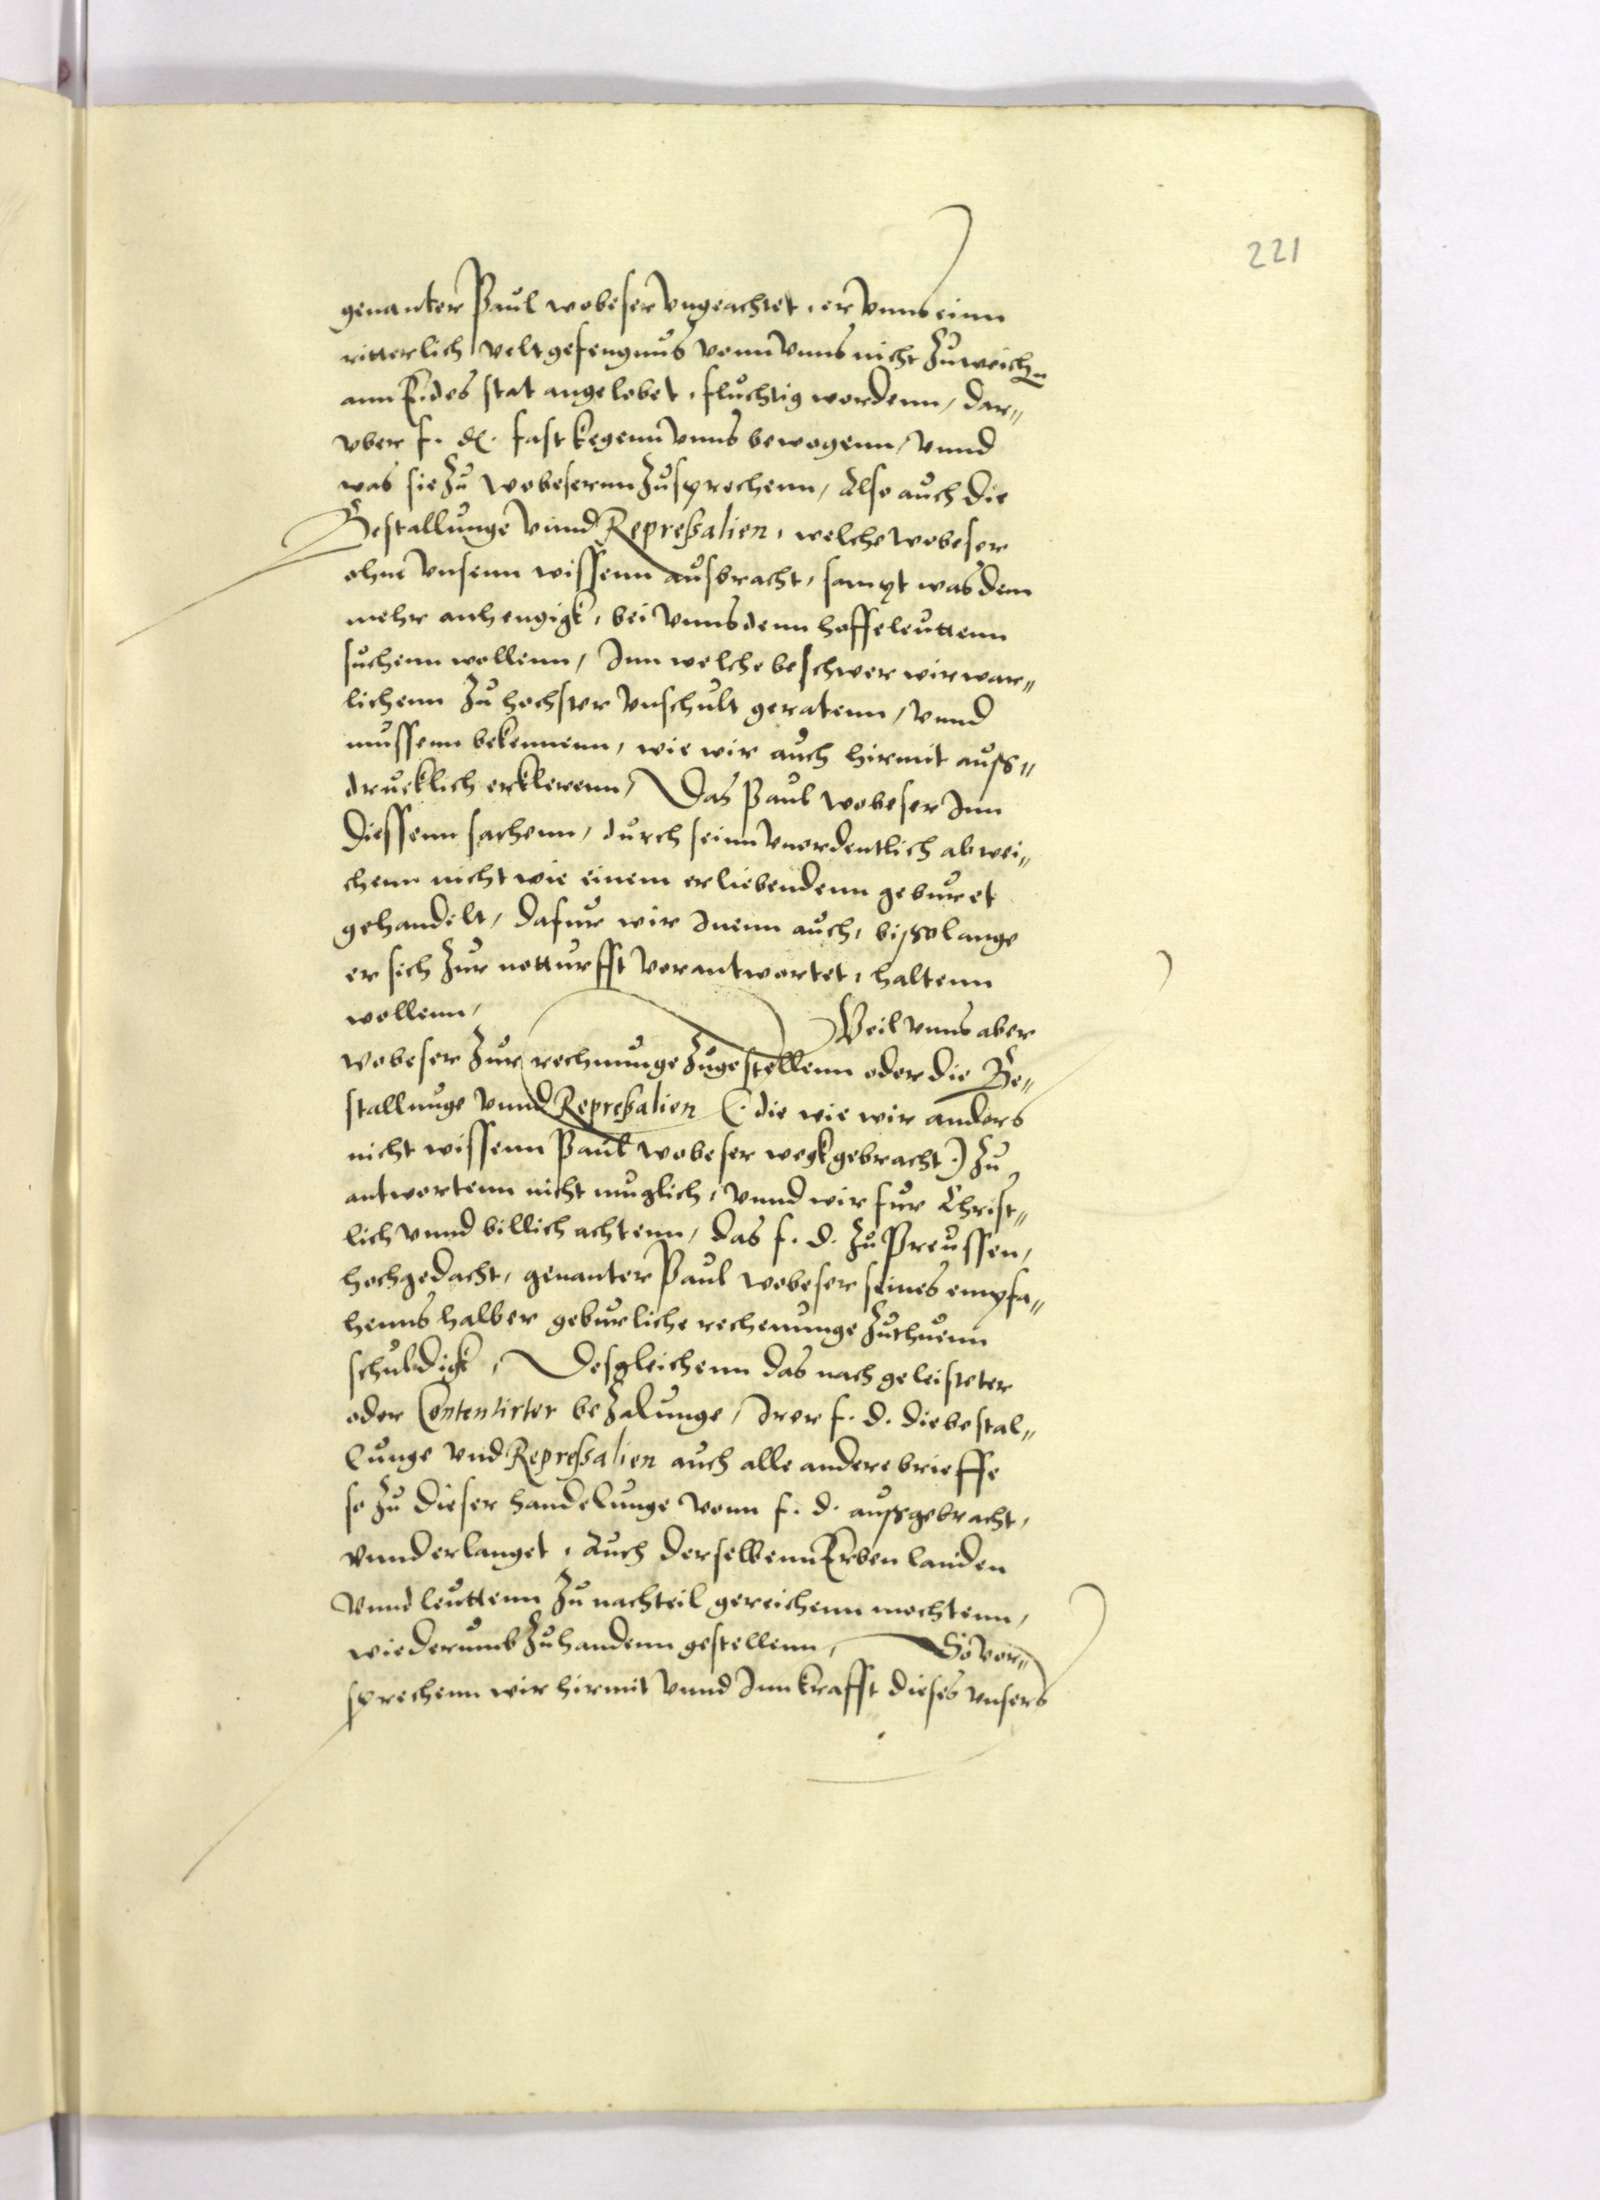 221
genanter Paul wobeser vngeachtet, er vnns einn
ritterlich veltgefengnus vonn vnns nicht zuweichen
ann Eides stat angelobet, fluchtig wordenn, dar„
vber f. d. fast kegenn vnns bewogenn, vnnd
was sie zu wobesernn zusprechenn, Also auch die
Bestallunge vnnd Repreßalien, welche wobeser
ohne vnsenn wissenn ausbracht, sampt was dem
mehr anhengigk, bei vnns denn hoffeleuttenn
suchenn wollenn, Inn welche beschwer wir war„
lichenn zu hochster vnschult geratenn, vnnd
mussenn bekennenn, wie wir auch hirmit auss„
drucklich erklerenn, Das Paul wobeser Inn
diessenn sachenn, durch seinn vnordentlich abwei„
chenn nicht wie einem erliebendenn geburet
gehandelt, dafur wir Inenn auch, bissolange
er sich zur notturfft verantwortet, haltenn
wollenn, Weil vnns aber
wobeser zur rechnunge zugestellenn oder die Be„
stallnuge vnnd Repreßalien (. die wie wir anders
nicht wissenn Paul wobeser wegkgebracht .) zu
antwortenn nicht muglich, vnnd wir fur Christ„
lich vnnd billich achtenn, das f. d. zu Preussen,
hochgedacht, genanter Paul wobeser seines empfa„
henns halber geburliche rechenunge zuthuenn
schuldigk, Desgleichenn das nach geleisteter
oder Contentirter bezalunge, Irer f. d. die bestal„
lunge vnd Repreßalien auch alle andere brieffe
so zu dieser handelunge vonn f. d. aussgebracht,
vnnd erlanget, Auch derselbenn Erben landen
vnnd leuttenn zu nachteil gereichenn mochtenn,
wiederumb zuhandenn gestellenn, So vor„
sprechenn wir hirmit vnnd Inn krafft dieses vnsers